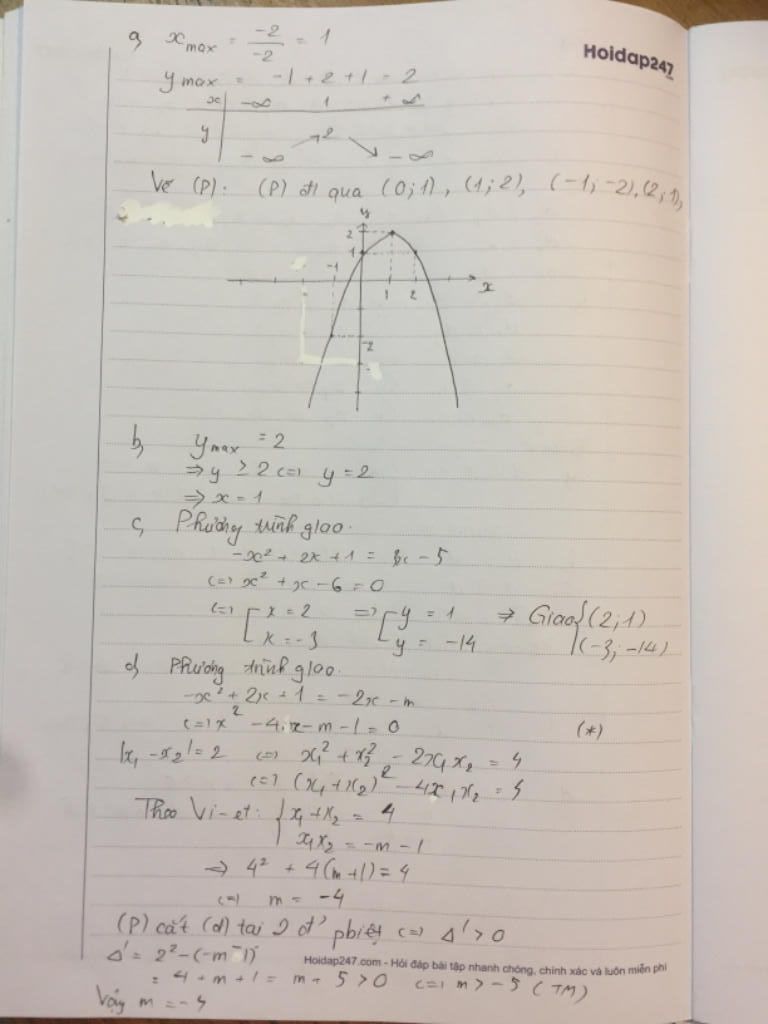 a, x max = -2/-2 = 1
Hoidap247
y max = -1 + 2 + 1 = 2
x -∞ 1 +∞
y 2
-∞ ↗ ↘ -∞
Vẽ (P): (P) đi qua (0;1), (1;2), (-1;-2), (2;1),
y
2
1
-1
1 2 x
-2
b, y max = 2
⇒ y ≥ 2 <=> y = 2
⇒ x = 1
c, Phương trình giao.
-x² + 2x + 1 = 3x - 5
<=> x² + x - 6 = 0
<=> [ x = 2 => [ y = 1 ⇒ Giao { (2;1)
x = -3 y = -14 (-3; -14)
d) Phương trình giao.
-x² + 2x + 1 = -2x - m
<=> x² - 4x - m - 1 = 0 (*)
|x₁ - x₂| = 2 <=> x₁² + x₂² - 2x₁x₂ = 4
<=> (x₁ + x₂)² - 4x₁x₂ = 4
Theo Vi-et: { x₁ + x₂ = 4
x₁x₂ = -m - 1
⇒ 4² + 4(m+1) = 4
<=> m = -4
(P) cắt (d) tại 2 đ' pbiệt <=> Δ' > 0
Δ' = 2² - (-m - 1)
Hoidap247.com - Hỏi đáp bài tập nhanh chóng, chính xác và luôn miễn phí
= 4 + m + 1 = m + 5 > 0 <=> m > -5 (TM)
Vậy m = -4